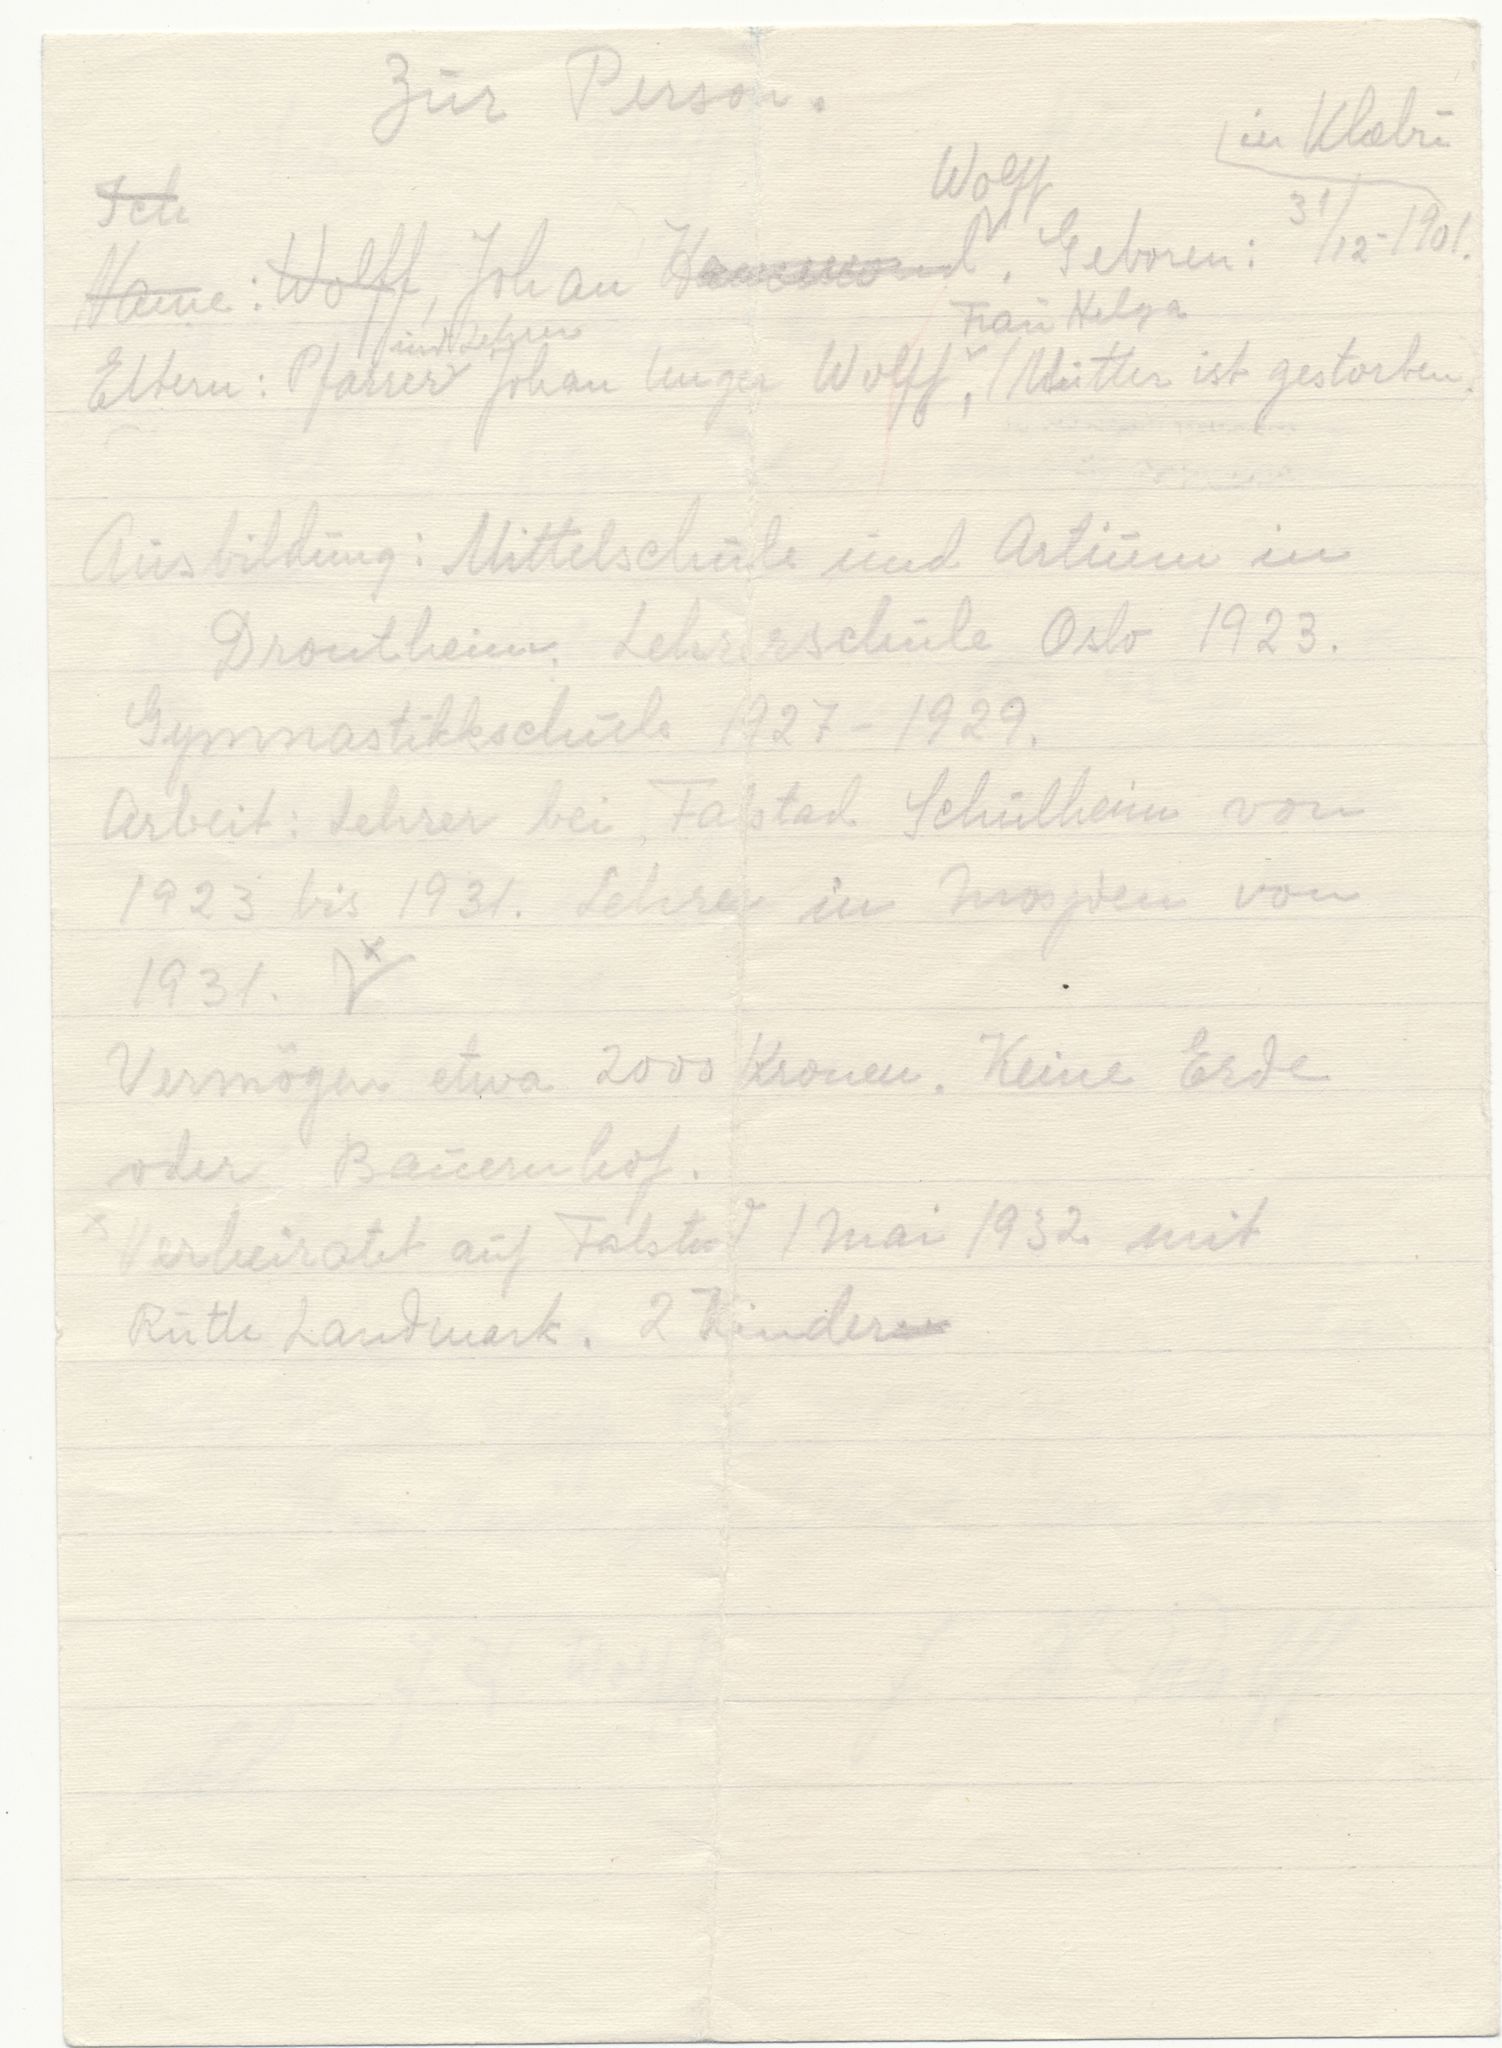 Zur Person.
in Klæbu
Ich
Wolff
Name: Wolff, Johan Hammond. Geboren: 31/12-1901.
und Lehrer
Frau Helga
Eltern: Pfarrer Johan Unger Wolff, (Mutter ist gestorben.
Ausbildung: Mittelschule und Artium in
Drontheim. Lehrerschule Oslo 1923.
Gymnastikkschule 1927-1929.
Arbeit: Lehrer bei Falstad Schulheim von
1923 bis 1931. Lehrer in Mosjöen von
1931. x
Vermögen etwa 2000 Kronen. Keine Erde
oder Bauernhof.
x Verheiratet auf Falstad 1 Mai 1932 mit
Ruth Landmark. 2 Kinder
J. H. Wolff